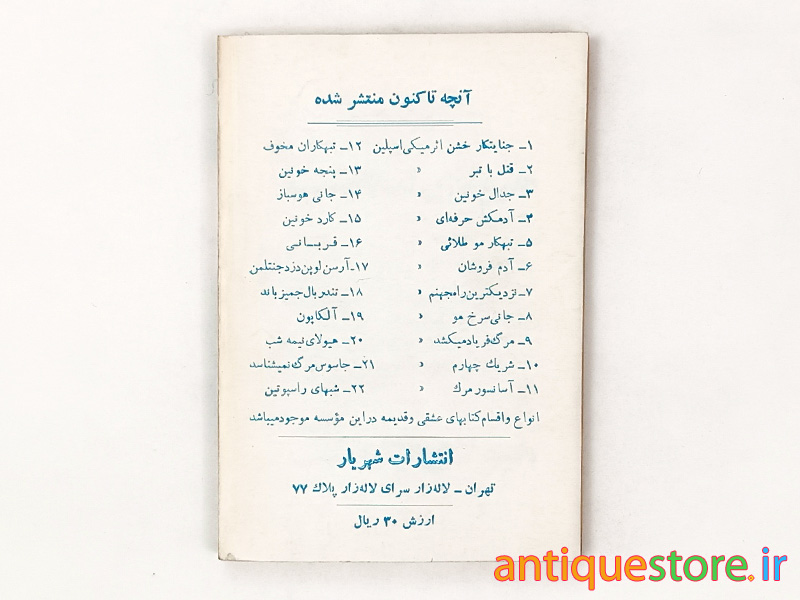 آنچه تاکنون منتشر شده
۱ـ جنایتکار خشن اثر میکی اسپلین
۲ـ قتل با تبر »
۳ـ جدال خونین »
۴ـ آدمکش حرفه‌ای »
۵ـ تبهکار مو طلائی »
۶ـ آدم فروشان »
۷ـ نزدیکترین راه جهنم »
۸ـ جانی سرخ مو »
۹ـ مرگ فریاد میکشد »
۱۰ـ شریک چهارم »
۱۱ـ آسانسور مرگ »
۱۲ـ تبهکاران مخوف
۱۳ـ پنجه خونین
۱۴ـ جانی هوسباز
۱۵ـ کارد خونین
۱۶ـ قربانی
۱۷ـ آرسن لوپن دزد جنتلمن
۱۸ـ تندر بال جمیز باند
۱۹ـ آلکاپون
۲۰ـ هیولای نیمه شب
۲۱ـ جاسوس مرگ نمیشناسد
۲۲ـ شبهای راسپوتین
انواع واقسام کتابهای عشقی وقدیمه دراین مؤسسه موجود میباشد
انتشارات شهریار
تهران ـ لاله‌زار سرای لاله‌زار پلاک ۷۷
ارزش ۳۰ ریال
antiquestore.ir